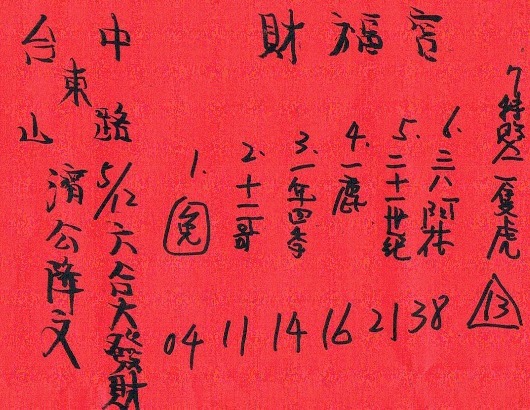 台中
東
山路
財福宮
濟公降文
5/12 六合大發財
1. 兔 04
2. 十一哥 11
3. 一年四季 14
4. 一鹿 16
5. 二十一世紀 21
6. 三八阿 38
7 特 隻虎 13